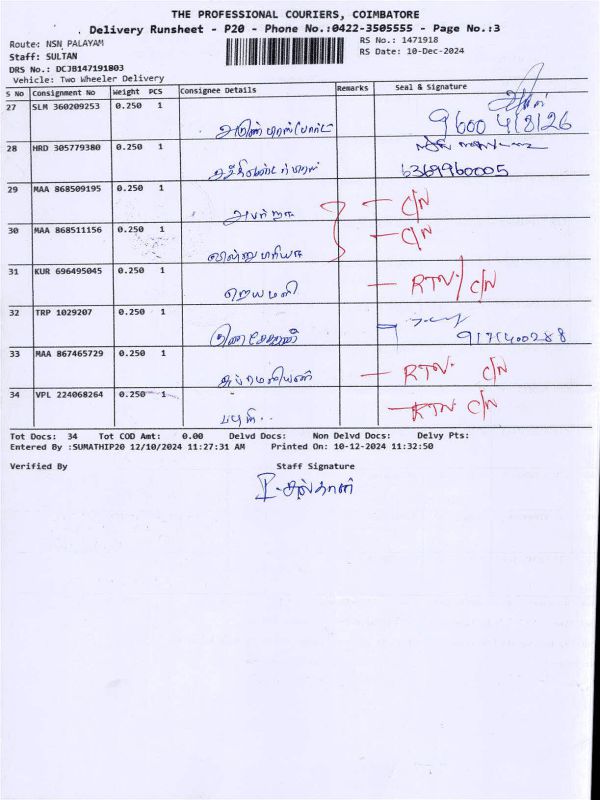 THE PROFESSIONAL COURIERS, COIMBATORE
Delivery Runsheet - P20 - Phone No.:0422-3505555 - Page No.:3
Route: NSN PALAYAM
RS No.: 1471918
Staff: SULTAN
RS Date: 10-Dec-2024
DRS No.: DCJB147191803
Vehicle: Two Wheeler Delivery
S No Consignment No Weight PCS Consignee Details Remarks Seal & Signature
27 SLM 360209253 0.250 1
28 HRD 305779380 0.250 1
6369960005
29 MAA 868509195 0.250 1 C/N
30 MAA 868511156 0.250 1 C/N
31 KUR 696495045 0.250 1 ஜெயமணி RTN/ C/N
32 TRP 1029207 0.250 1
33 MAA 867465729 0.250 1 RTN. C/N
34 VPL 224068264 0.250 1 RTN. C/N
Tot Docs: 34 Tot COD Amt: 0.00 Delvd Docs: Non Delvd Docs: Delvy Pts:
Entered By :SUMATHIP20 12/10/2024 11:27:31 AM Printed On: 10-12-2024 11:32:50
Verified By Staff Signature